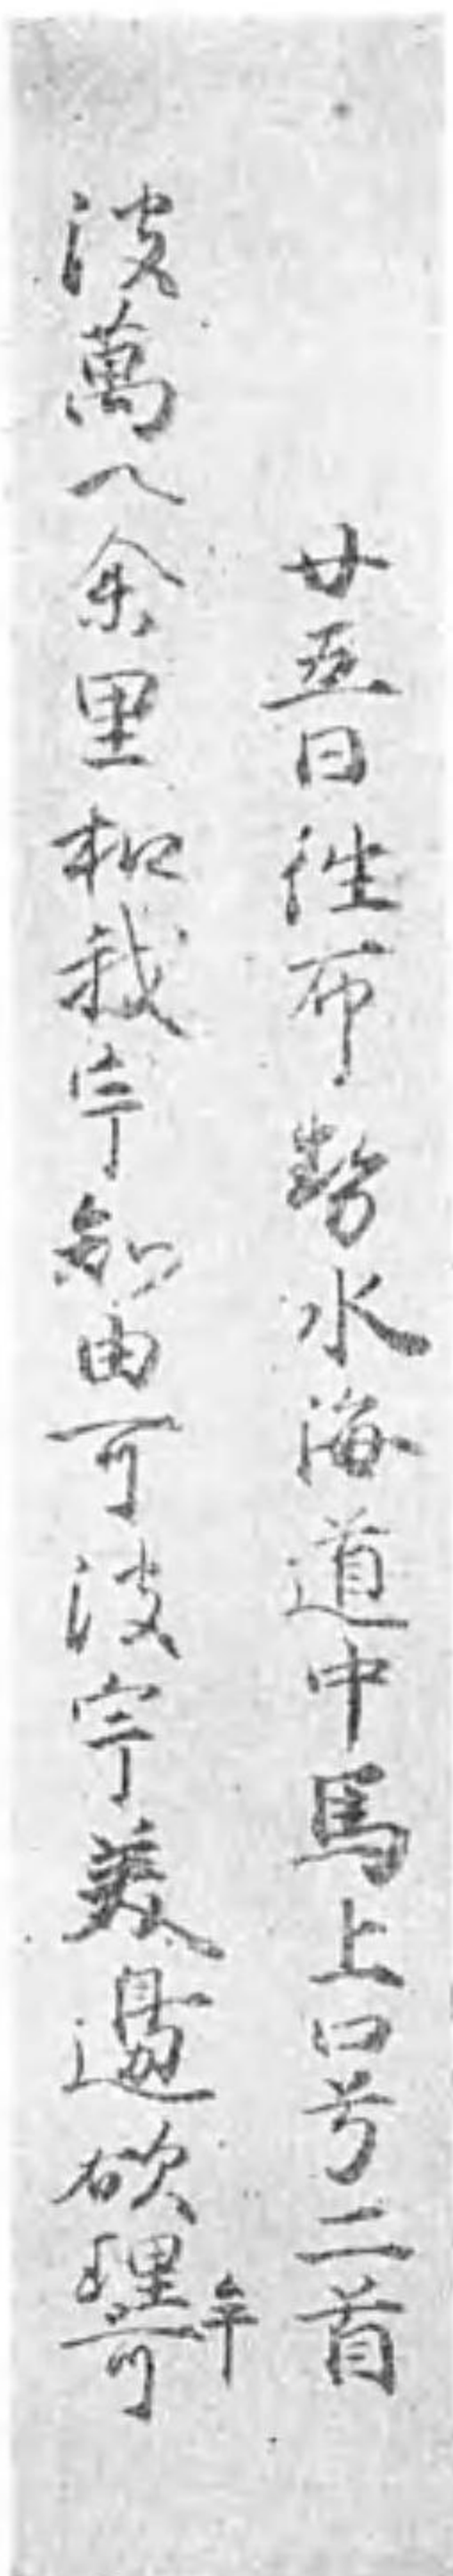 廿五日徃布勢水海道中馬上口号二首
波萬へ余里和我宇知由可波宇美邊欲理牟可